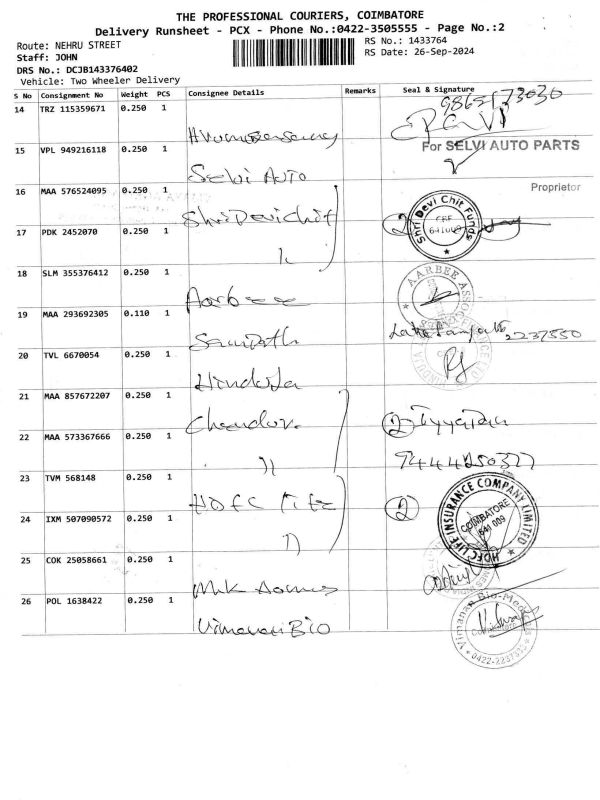 THE PROFESSIONAL COURIERS, COIMBATORE
Delivery Runsheet - PCX - Phone No.:0422-3505555 - Page No.:2
Route: NEHRU STREET
RS No.: 1433764
Staff: JOHN
RS Date: 26-Sep-2024
DRS No.: DCJB143376402
Vehicle: Two Wheeler Delivery
S No Consignment No Weight PCS Consignee Details Remarks Seal & Signature
9865173030
14 TRZ 115359671 0.250 1
For SELVI AUTO PARTS
15 VPL 949216118 0.250 1 Selvi Auto
Proprietor
16 MAA 576524095 0.250 1 Shri Devi Chit
Shri Devi Chit Funds
CBE
17 PDK 2452070 0.250 1 "
2
18 SLM 355376412 0.250 1 Aarbee
AARBEE ASSOC
19 MAA 293692305 0.110 1 Sampath
2237550
20 TVL 6670054 0.250 1 Hinduja
21 MAA 857672207 0.250 1
2
22 MAA 573367666 0.250 1 "
9444250377
23 TVM 568148 0.250 1 HDFC Life
2
HDFC LIFE INSURANCE COMPANY LIMITED
COIMBATORE
641 009
24 IXM 507090572 0.250 1 "
25 COK 25058661 0.250 1
26 POL 1638422 0.250 1 Vimanan Bio
Vimanan Bio-Medicals